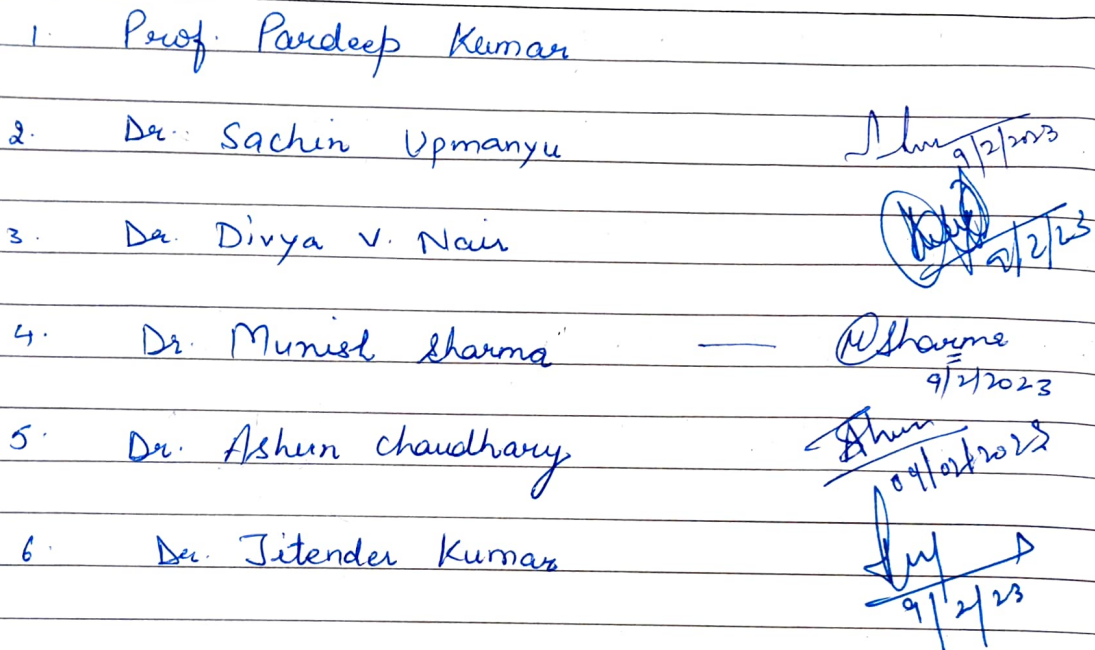 1. Prof. Pardeep Kumar
2. Dr. Sachin Upmanyu 9/2/2023
3. Dr. Divya V. Nair 9/2/23
4. Dr. Munish Sharma — MSharma 9/2/2023
5. Dr. Ashun Chaudhary Ashun 09/02/2023
6. Dr. Jitender Kumar 9/2/23